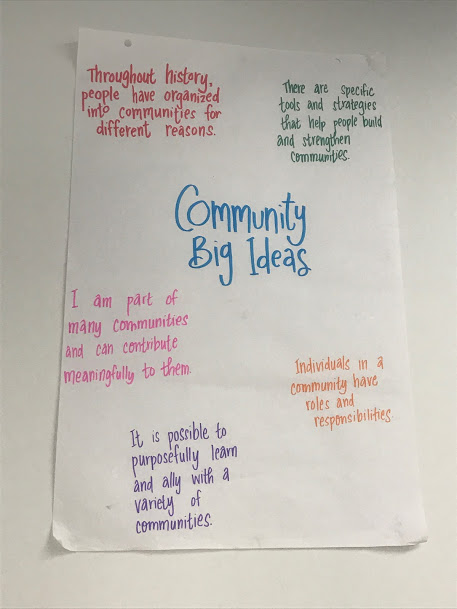 Throughout history,
people have organized
into communities for
different reasons.
There are specific
tools and strategies
that help people build
and strengthen
communities.
Community
Big Ideas
I am part of
many communities
and can contribute
meaningfully to them.
Individuals in a
community have
roles and
responsibilities.
It is possible to
purposefully learn
and ally with a
variety of
communities.